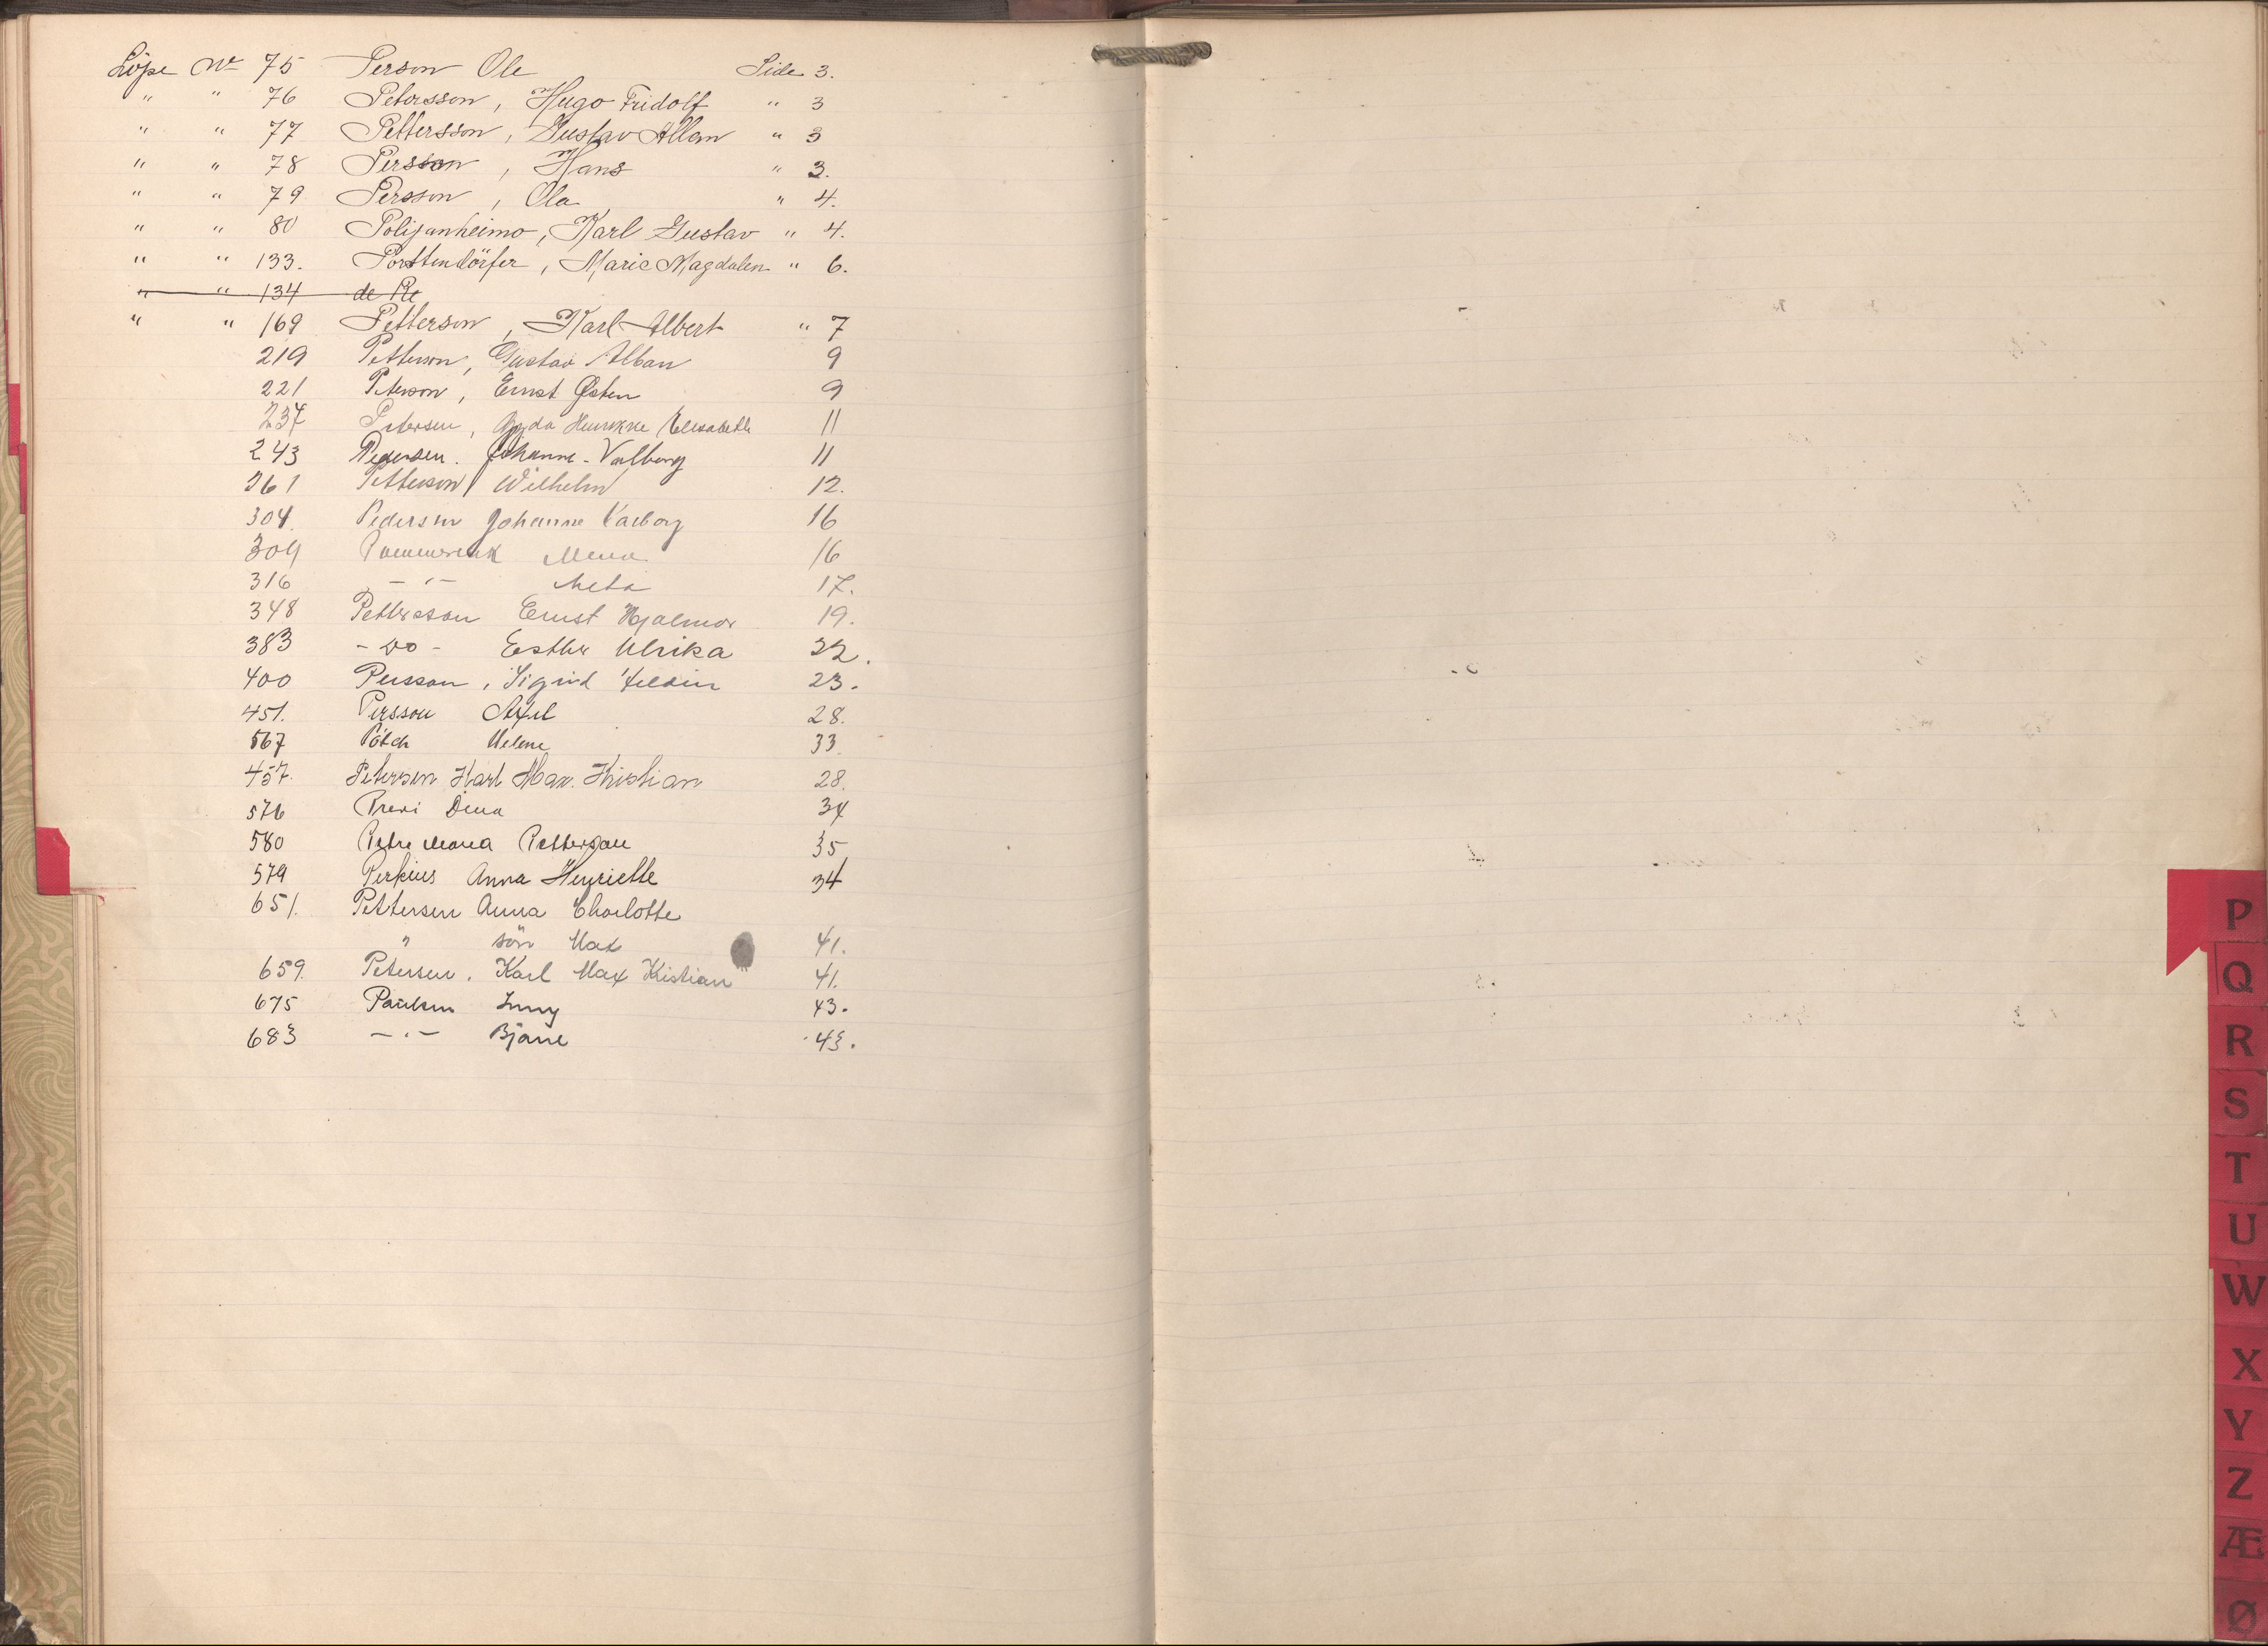 Löpe No 75 Person Ole Side 3.
" " 76 Petersson, Hugo Fridolf " 3
" " 77 Pettersson, Gustav Allan " 3
" " 78 Persson, Hans " 3.
" " 79 Persson, Ola " 4.
" " 80 Polijanheimo, Karl Gustav " 4.
" " 133. Porstendörfer, Marie Magdalen " 6.
" " 134 de Re
" " 169 Petterson, Karl Albert " 7
219 Petterson, Gustav Alban 9
221 Peterson, Ernst Østen 9
237 Petersen, Agda Henrikke Elisabeth 11
243 Pedersen. Johanne Valborg 11
261 Petterson Wilhelm 12.
304. Pedersen Johanne Valborg 16
309 16
316 — " — Meta 17.
348 Pettersson Ernst Hjalmar 19.
383 - Do - Esther Ulrika 22.
400 Persson, Sigrid 23.
451. Persson Axel 28.
567 Helene 33
457. Petersen Karl Max. Kristian 28.
576 34
580 Petra Maria Petterson 35
579 Perkins Anna Henriette 34
651. Pettersen Anna Charlotte
" sön Max 41.
659. Petersen. Karl Max Kristian 41.
675 Paulsen 43.
683 — " — Bjarne 43.
P
Q
R
S
T
U
W
X
Y
Z
Æ
Ø